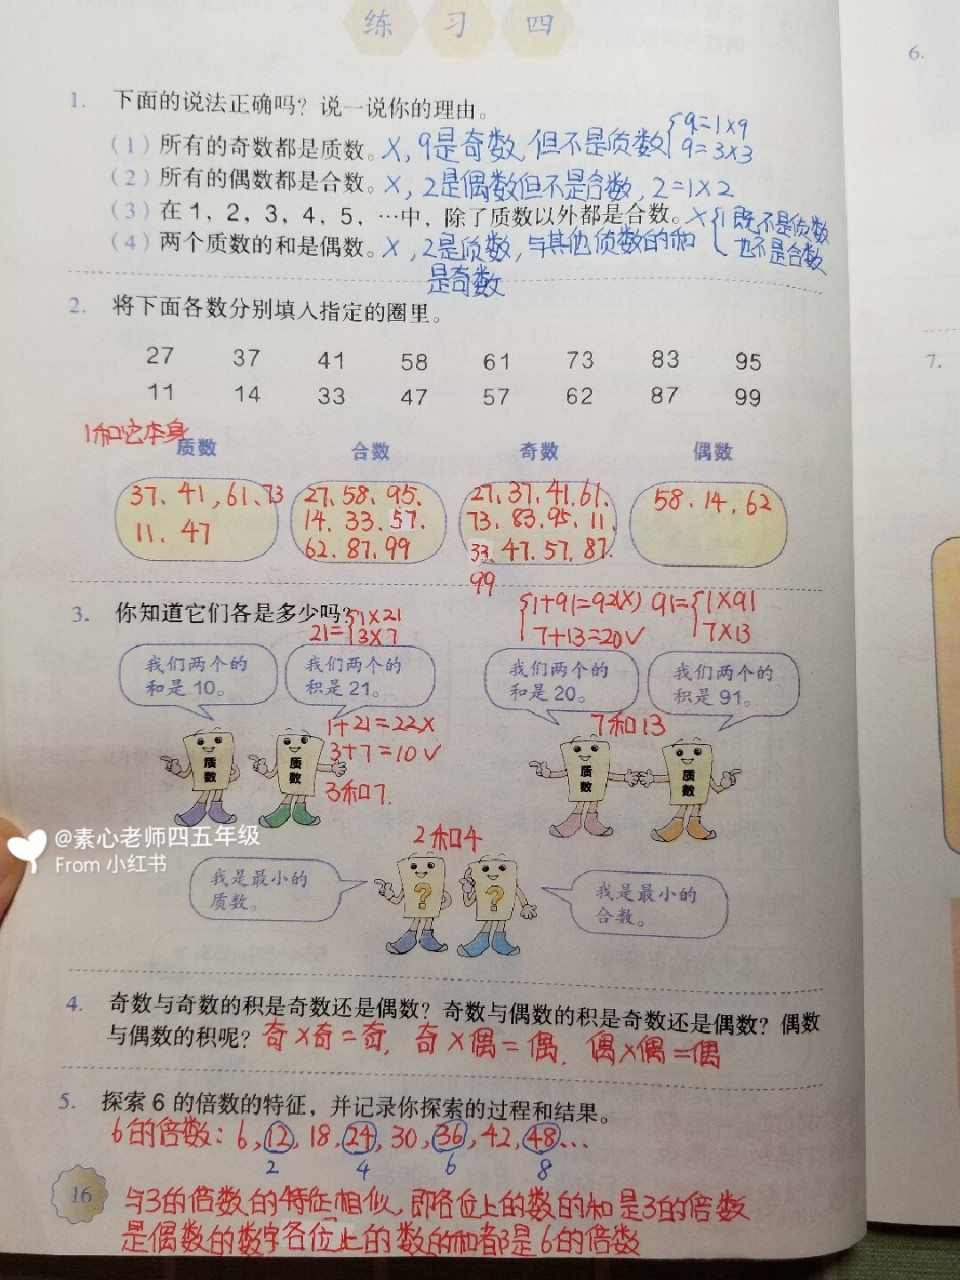 练 习 四
1. 下面的说法正确吗？说一说你的理由。
(1) 所有的奇数都是质数。×, 9是奇数,但不是质数{9=1×9
9=3×3
(2) 所有的偶数都是合数。×, 2是偶数但不是合数, 2=1×2
(3) 在 1，2，3，4，5，…中，除了质数以外都是合数。×{1既不是质数
也不是合数
(4) 两个质数的和是偶数。×, 2是质数, 与其他质数的和
是奇数
2. 将下面各数分别填入指定的圈里。
27 37 41 58 61 73 83 95
11 14 33 47 57 62 87 99
1和它本身
质数 合数 奇数 偶数
37、41,61、73 27、58、95、 27、37、41、61、 58、14、62
11、47 14、33、57、 73、83、95、11、
62、87、99 33、47、57、87、
99
3. 你知道它们各是多少吗？
21={1×21
3×7
{1+91=92(×) 91={1×91
7+13=20✓ 7×13
我们两个的 我们两个的 我们两个的 我们两个的
和是 10。 积是 21。 和是 20。 积是 91。
1+21=22×
3+7=10✓
3和7.
7和13
质数 质数 质数 质数
2和4
@素心老师四五年级
From 小红书
我是最小的
质数。
? ?
我是最小的
合数。
4. 奇数与奇数的积是奇数还是偶数？奇数与偶数的积是奇数还是偶数？偶数
与偶数的积呢？奇×奇=奇. 奇×偶=偶. 偶×偶=偶
5. 探索 6 的倍数的特征，并记录你探索的过程和结果。
6的倍数：6,12,18,24,30,36,42,48...
2 4 6 8
16 与3的倍数的特征相似,即各位上的数的和是3的倍数
是偶数的数字各位上的数的和都是6的倍数
6.
7.